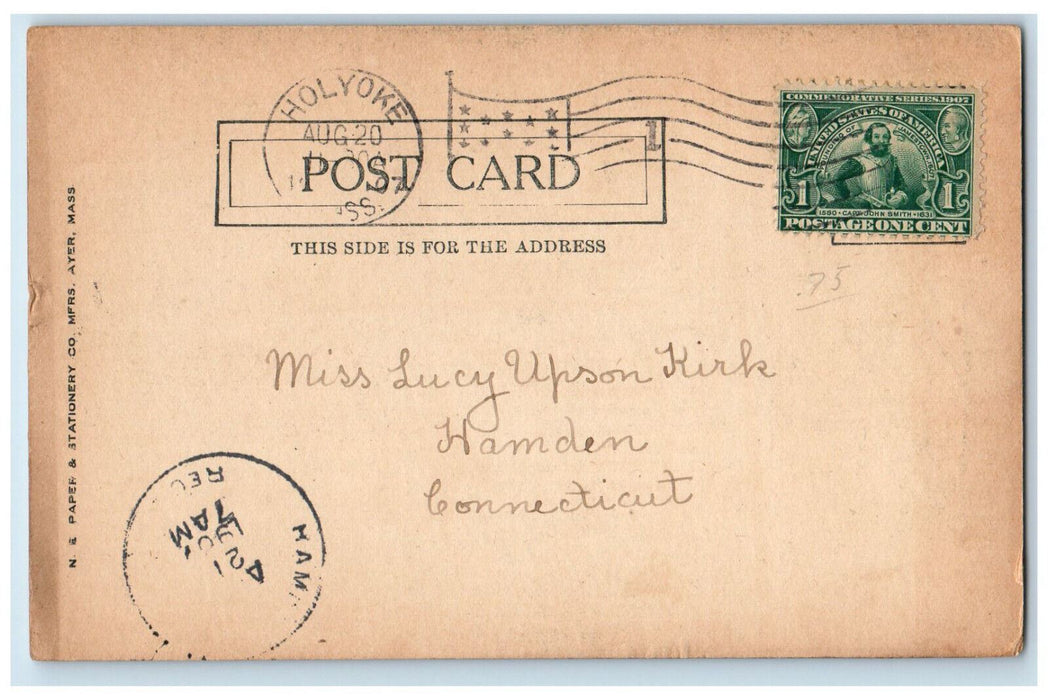 HOLYOKE
AUG 20
07
SS.
1
COMMEMORATIVE SERIES 1907
UNITED STATES OF AMERICA
FOUNDING OF JAMESTOWN
1 1
1580 · CAPT JOHN SMITH · 1631
POSTAGE ONE CENT
POST CARD
THIS SIDE IS FOR THE ADDRESS
75
Miss Lucy Upson Kirk
Hamden
Connecticut
N. E. PAPER & STATIONERY CO. MFRS. AYER, MASS
HAM
REC
7 AM